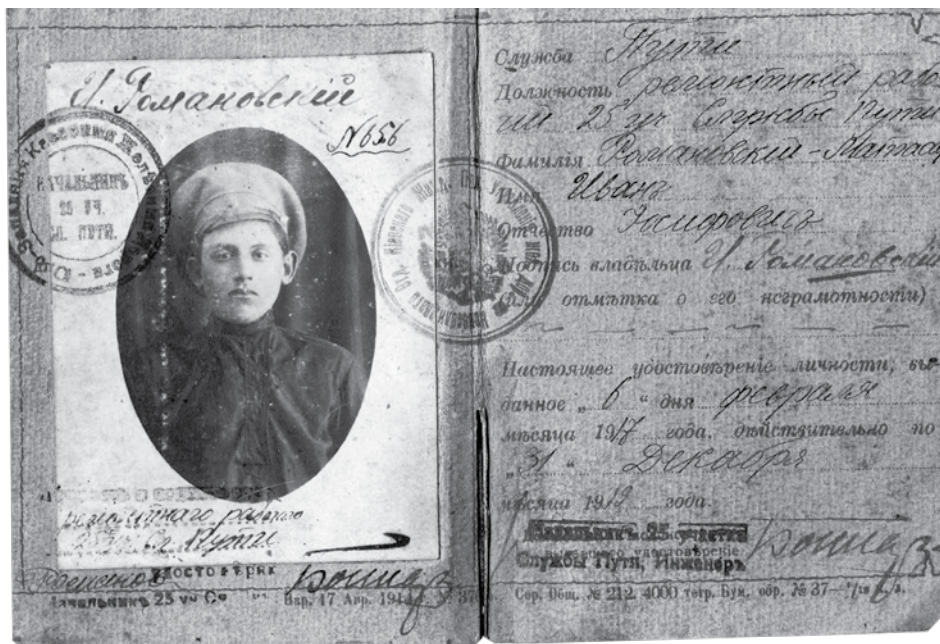 И. Романовскій
№656
Юго-Западная Казенная Желѣзная дорога
НАЧАЛЬНИКЪ
25 УЧ.
СЛ. ПУТИ.
ремонтнаго рабочаго
25 уч. Сл. Пути
УДОСТОВѢРЯЮ
Начальникъ 25 уч Сл
Нар. 17 Апр. 1914 г. № 37
Служба Пути
Должность ремонтный рабо-
чий 25 уч. Службы Пути
Фамилія Романовскій-
Имя Иванъ
Отчество Иосифовичъ
Подпись владѣльца И. Романовскій
(или отмѣтка о его неграмотности)
Настоящее удостовѣреніе личности, вы-
данное „ 6 “ дня февраля
мѣсяца 1917 года, дѣйствительно по
„ 31 “ Декабря
мѣсяца 19 года.
Начальникъ 25 участка
удостовѣреніе
Службы Пути, Инженеръ
Сер. Общ. № 212. 4000 тетр. Бум. обр. № 37—